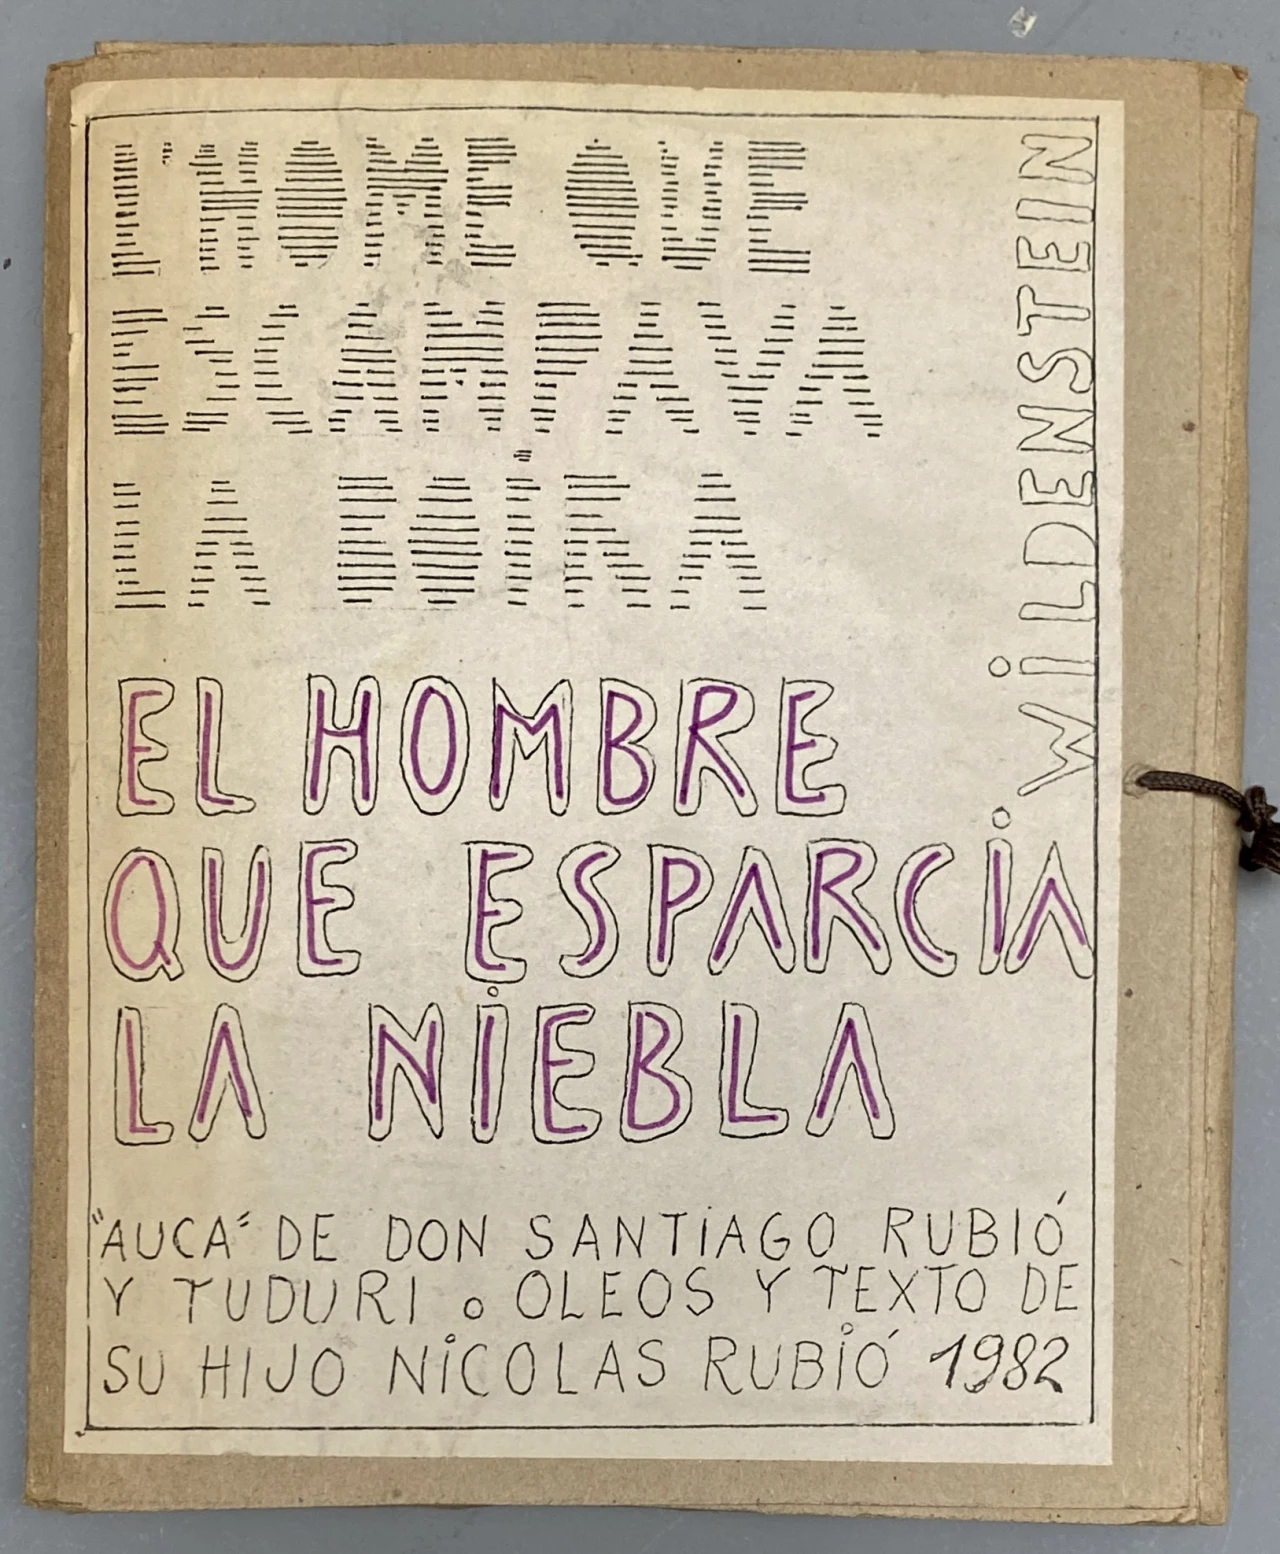 L'HOME QUE
ESCAMPAVA
LA BOIRA
EL HOMBRE
QUE ESPARCiA
LA NiEBLA
"AUCA" DE DON SANTiAGO RUBIÓ
Y TUDURI o OLEOS Y TEXTO DE
SU HIJO NiCOLAS RUBiÓ 1982
WiLDENSTEIN